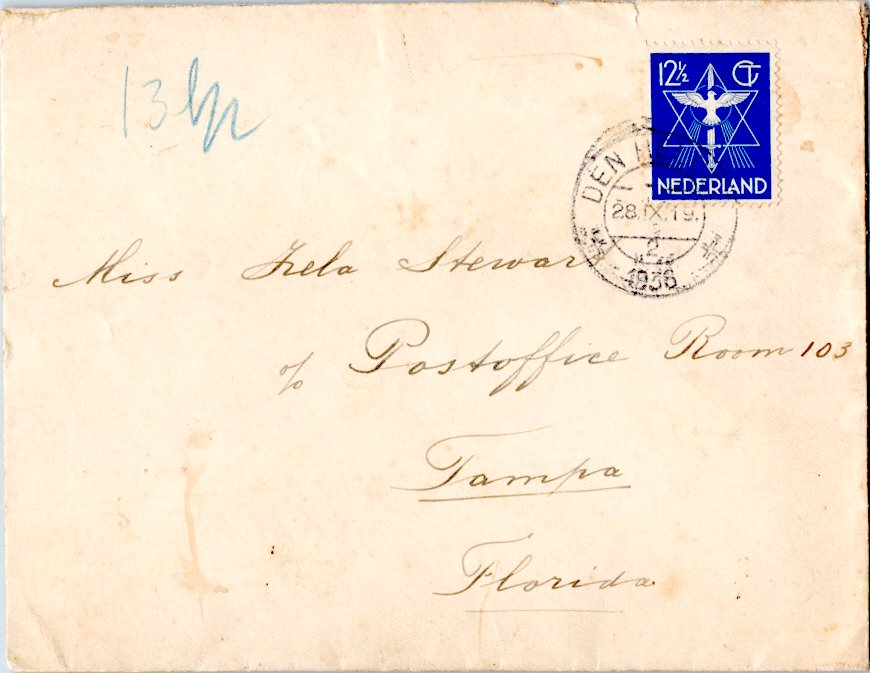 12½ CT
NEDERLAND
DEN H
28.IX.19.
2
1936
13
Miss Zela Stewart
c/o Postoffice Room 103
Tampa
Florida